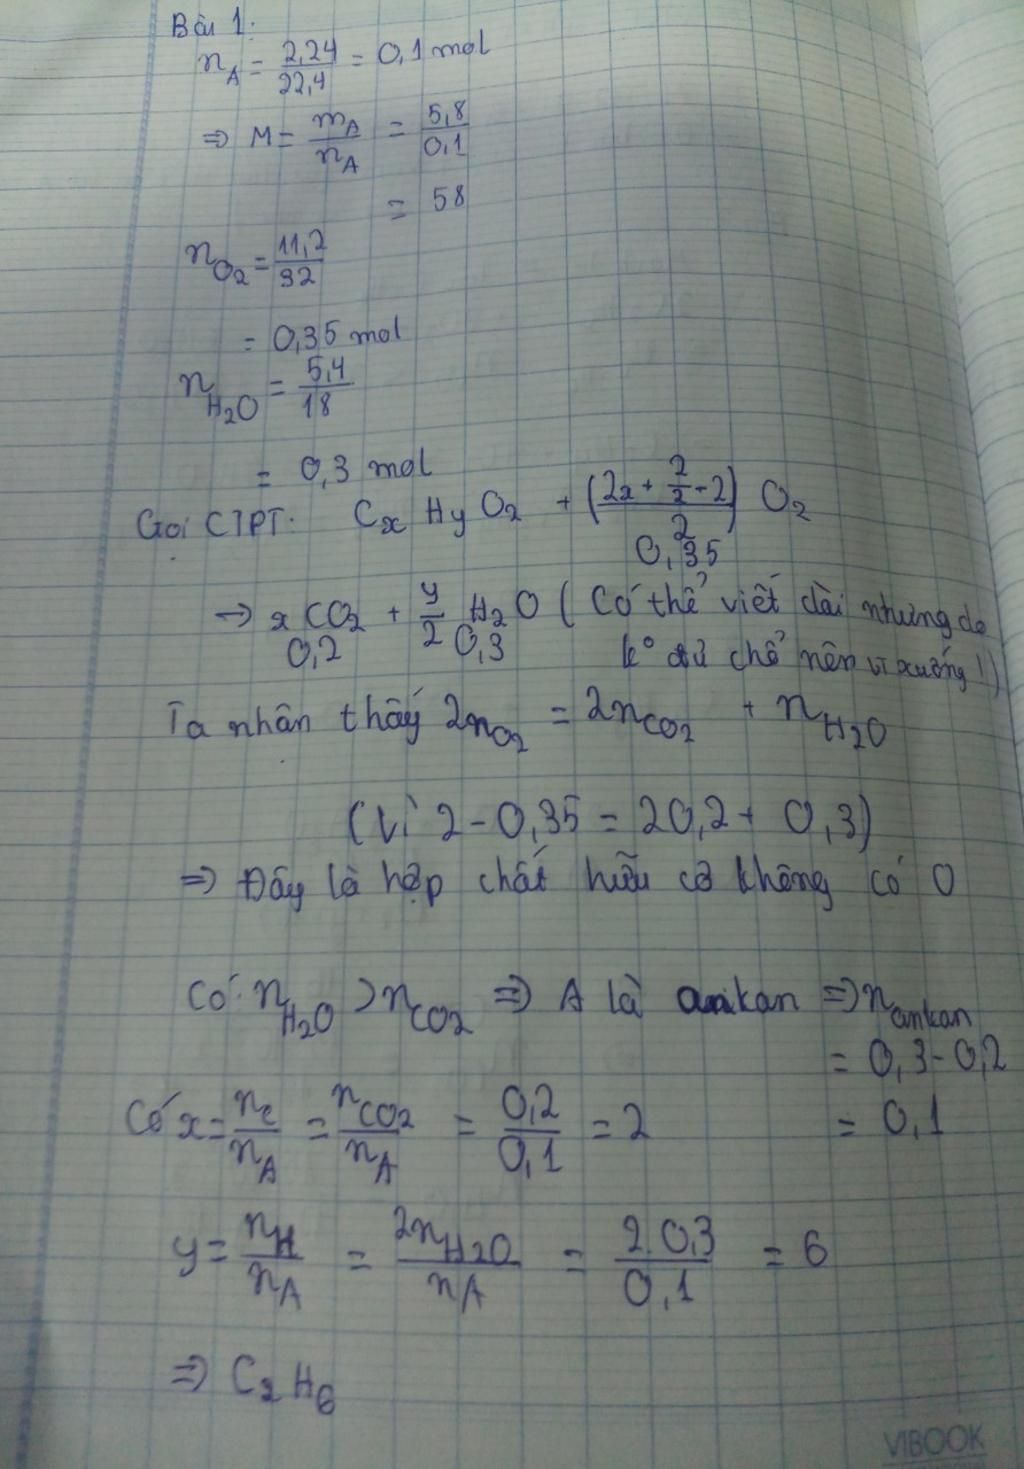 Bài 1:
n_A = 2,24/22,4 = 0,1 mol
⇒ M = m_A/n_A = 5,8/0,1
= 58
n_O2 = 11,2/32
= 0,35 mol
n_H2O = 5,4/18
= 0,3 mol
Gọi CTPT: CxHyO2 + ((2x + 2/2 - 2)/2) O2
0,35
→ xCO2 + y/2 H2O (Có thể viết dài nhưng do
0,2 0,3 k° đủ chỗ nên vì xuống!)
Ta nhân thấy 2n_O2 = 2n_CO2 + n_H2O
(Vì 2-0,35 = 20,2 + 0,3)
⇒ Đây là hợp chất hữu cơ không có O
Có: n_H2O > n_CO2 ⇒ A là ankan ⇒ n_ankan
= 0,3-0,2
Có x = n_C/n_A = n_CO2/n_A = 0,2/0,1 = 2 = 0,1
y = n_H/n_A = 2n_H2O/n_A = 2.0,3/0,1 = 6
⇒ C2H6
VIBOOK